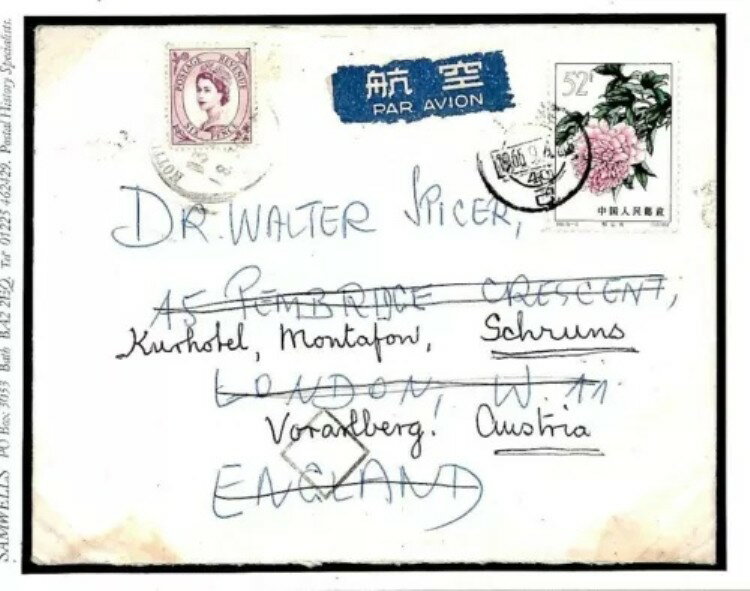 SAMWELLS PO Box 3033 Bath BA2 Tel 01225 462429. Postal History Specialists.
POSTAGE REVENUE
SIXPENCE
航空
PAR AVION
52
中国人民邮政
DR. WALTER SPICER,
15 PEMBRIDGE CRESCENT,
Kurhotel, Montafon, Schruns
LONDON, W. 11
Vorarlberg! Austria
ENGLAND